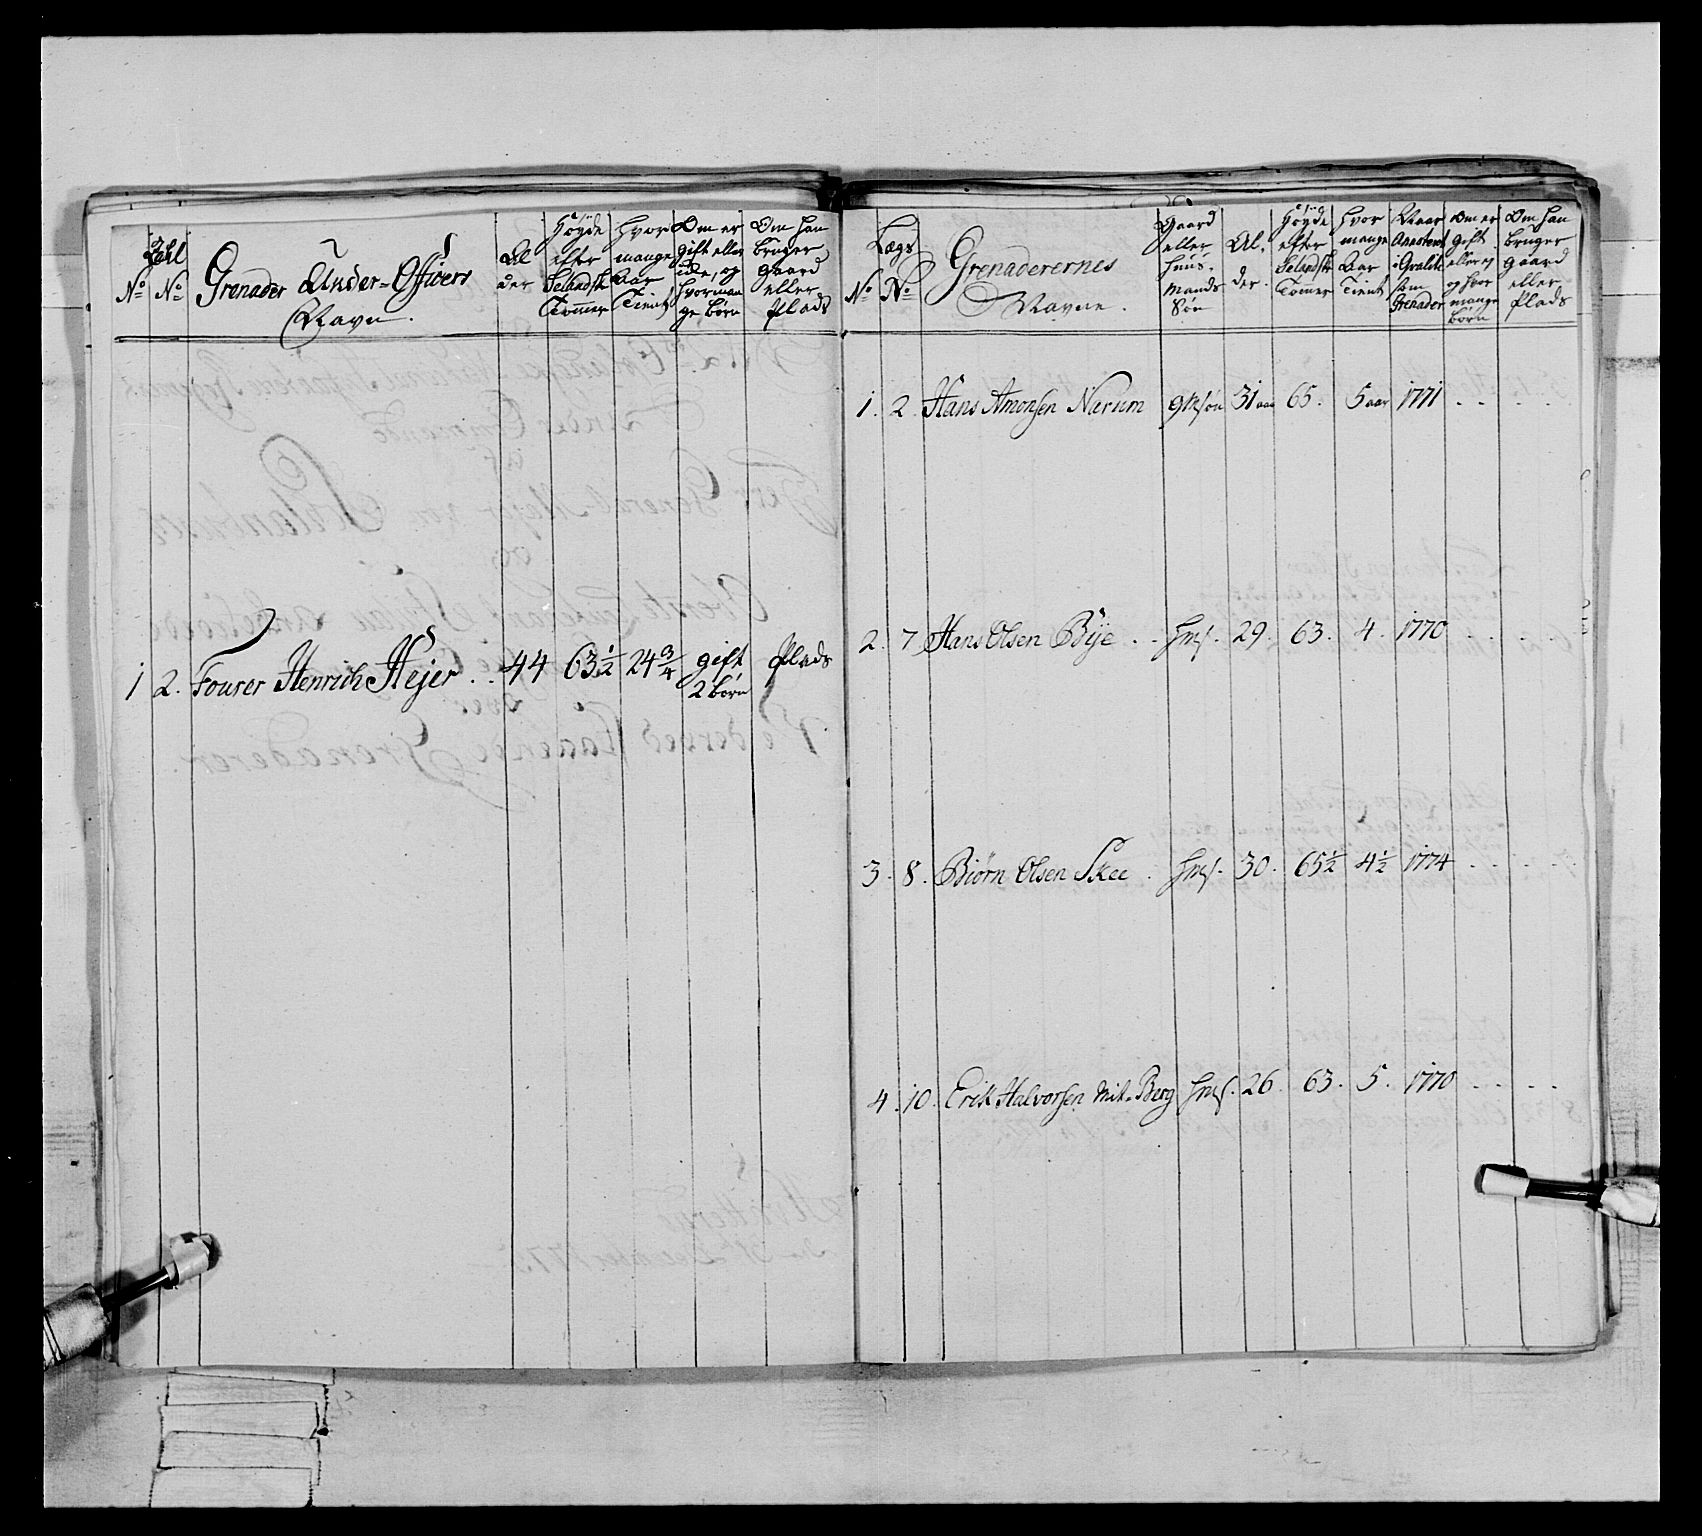 No No Grenader Under-Officers
Navn.
Al
der
Høyde
efter
Selandsk
Tommer
Hvor
mange
Aar
Tient
Om er
gift eller
ide, og
hvorman
ge børn
Om han
bruger
gaard
eller
Plads
1 2. Fourer Henrich Hejer . . 44 63½ 24¾ gift Plads
2 børn
Lægs
No No
Grenaderernes
Navne.
Gaard
eller
huus-
mands
Søn
Al-
der.
Høyde
efter
Selandsk
Tommer
Hvor
mange
Aar
Tient
Naar
Annoteret
i Qvalitet
som
Grenader
Om er
gift
eller ej
og hvor
mange
børn
Om han
bruger
gaard
eller
Plads
1. 2. Hans Amonsen Narum 31 aar 65. 5 aar 1771 . . . .
2. 7 Hans Olsen Bÿe . . 29. 63. 4. 1770 . . . .
3. 8. Biørn Olsen Skee . 30. 65½ 4½ 1774 . . . .
4. 10. Erik Halvorsen Mit-Berg 26. 63. 5. 1770 . . . .